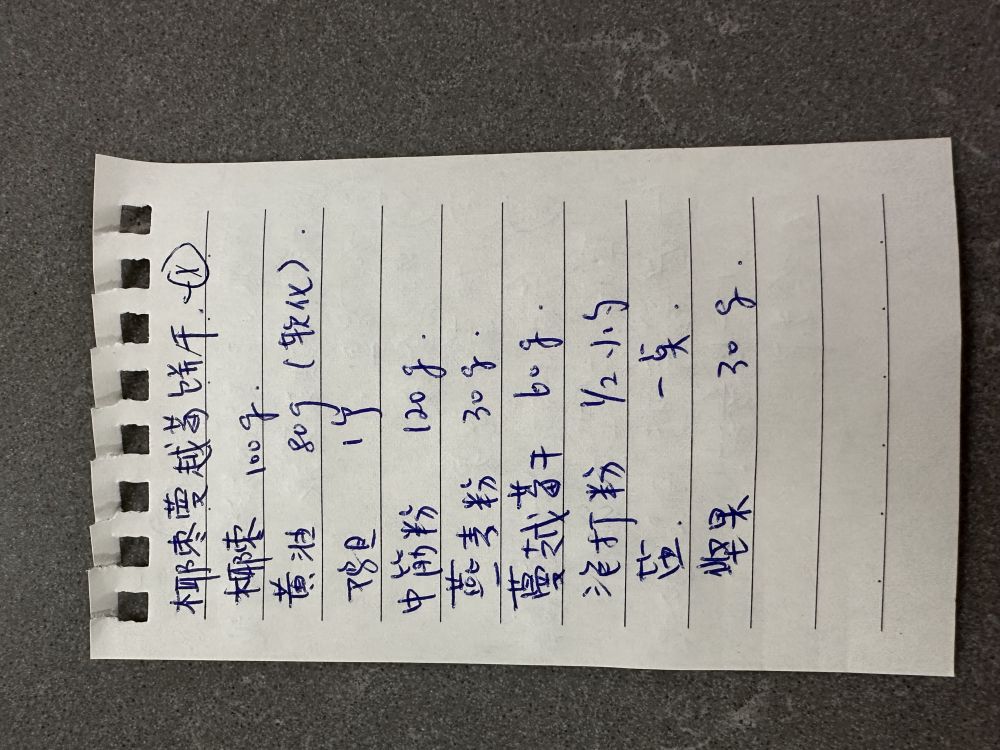 椰枣蔓越莓饼干.
椰枣 100g.
黄油 80g (软化).
鸡旦 1个
中筋粉 120g.
燕麦粉 30g.
蔓越莓干 60g.
泡打粉 1/2小勺
盐. 一点.
坚果 30g.